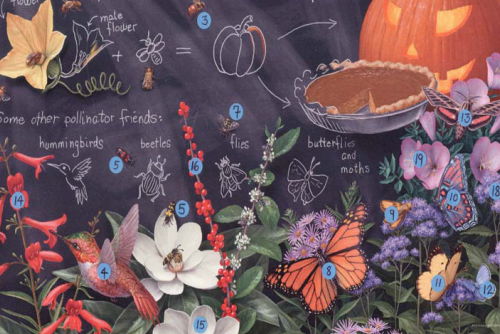 male
flower
+
=
3
Some other pollinator friends:
7
hummingbirds
beetles
flies
butterflies
and
moths
5
16
13
19
14
10
9
5
4
8
11
12
15